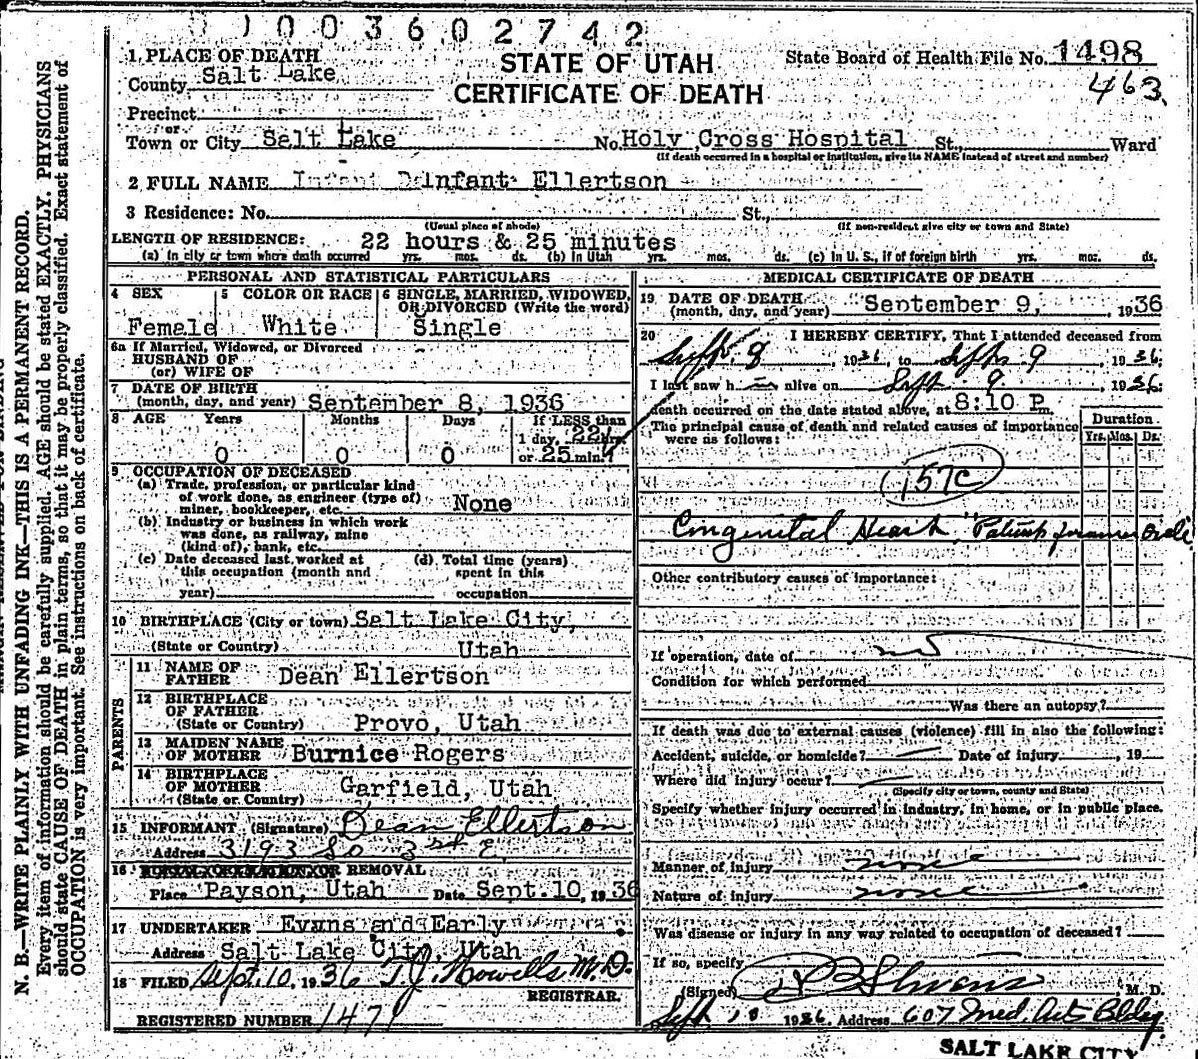 1003602742
1. PLACE OF DEATH
County Salt Lake
STATE OF UTAH
CERTIFICATE OF DEATH
State Board of Health File No. 1498
463
Precinct
or
Town or City Salt Lake No. Holy Cross Hospital St., Ward
(If death occurred in a hospital or institution, give its NAME instead of street and number)
2 FULL NAME Infant Ellertson
3 Residence: No. St.,
(Usual place of abode) (If non-resident give city or town and State)
LENGTH OF RESIDENCE: 22 hours & 25 minutes
(a) In city or town where death occurred yrs. mos. ds. (b) In Utah yrs. mos. ds. (c) In U. S., if of foreign birth yrs. mos. ds.
PERSONAL AND STATISTICAL PARTICULARS
4 SEX Female
5 COLOR OR RACE White
6 SINGLE, MARRIED, WIDOWED, OR DIVORCED (Write the word)
Single
6a If Married, Widowed, or Divorced
HUSBAND OF
(or) WIFE OF
7 DATE OF BIRTH
(month, day, and year) September 8, 1936
8 AGE Years Months Days If LESS than
1 day, 22 hrs.
0 0 0 or 25 min.
9 OCCUPATION OF DECEASED
(a) Trade, profession, or particular kind
of work done, as engineer (type of)
miner, bookkeeper, etc. None
(b) Industry or business in which work
was done, as railway, mine
(kind of), bank, etc.
(c) Date deceased last worked at
this occupation (month and
year)
(d) Total time (years)
spent in this
occupation
10 BIRTHPLACE (City or town) Salt Lake City,
(State or Country) Utah
PARENTS
11 NAME OF
FATHER Dean Ellertson
12 BIRTHPLACE
OF FATHER
(State or Country) Provo, Utah
13 MAIDEN NAME
OF MOTHER Burnice Rogers
14 BIRTHPLACE
OF MOTHER
(State or Country) Garfield, Utah
15 INFORMANT (Signature) Dean Ellertson
Address 3193 So 3rd E.
16 BURIAL, CREMATION, OR REMOVAL
Place Payson, Utah Date Sept. 10, 1936
17 UNDERTAKER Evans and Early
Address Salt Lake City, Utah
18 FILED Sept. 10, 1936 T. J. Howells M. D.
REGISTRAR.
REGISTERED NUMBER 1471
MEDICAL CERTIFICATE OF DEATH
19 DATE OF DEATH
(month, day, and year) September 9, 1936
20 I HEREBY CERTIFY, That I attended deceased from
Sept. 8, 1936, to Sept 9, 1936.
I last saw h alive on Sept. 9, 1936:
death occurred on the date stated above, at 8:10 P m.
The principal cause of death and related causes of importance
were as follows:
Duration
Yrs. Mos. Ds.
157c
Congenital Heart, "Patent foramen Ovale"
Other contributory causes of importance:
If operation, date of no
Condition for which performed
Was there an autopsy?
If death was due to external causes (violence) fill in also the following:
Accident, suicide, or homicide? Date of injury , 19
Where did injury occur?
(Specify city or town, county and State)
Specify whether injury occurred in industry, in home, or in public place.
Manner of injury none
Nature of injury none
Was disease or injury in any way related to occupation of deceased?
If so, specify
(Signed) M. D.
Sept. 10 1936 Address 607 Med. Arts Bldg
SALT LAKE CITY
N. B.—WRITE PLAINLY WITH UNFADING INK—THIS IS A PERMANENT RECORD.
Every item of information should be carefully supplied. AGE should be stated EXACTLY. PHYSICIANS
should state CAUSE OF DEATH in plain terms, so that it may be properly classified. Exact statement of
OCCUPATION is very important. See instructions on back of certificate.